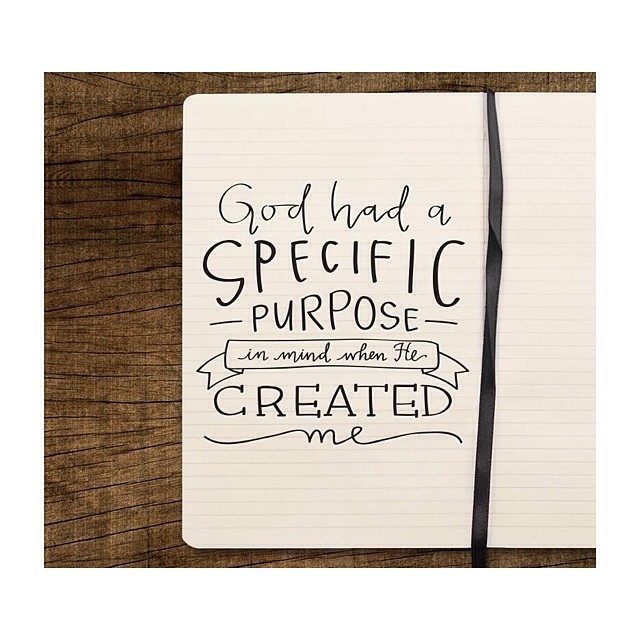 God had a
SPECIFIC
PURPOSE
in mind when He
CREATED
me